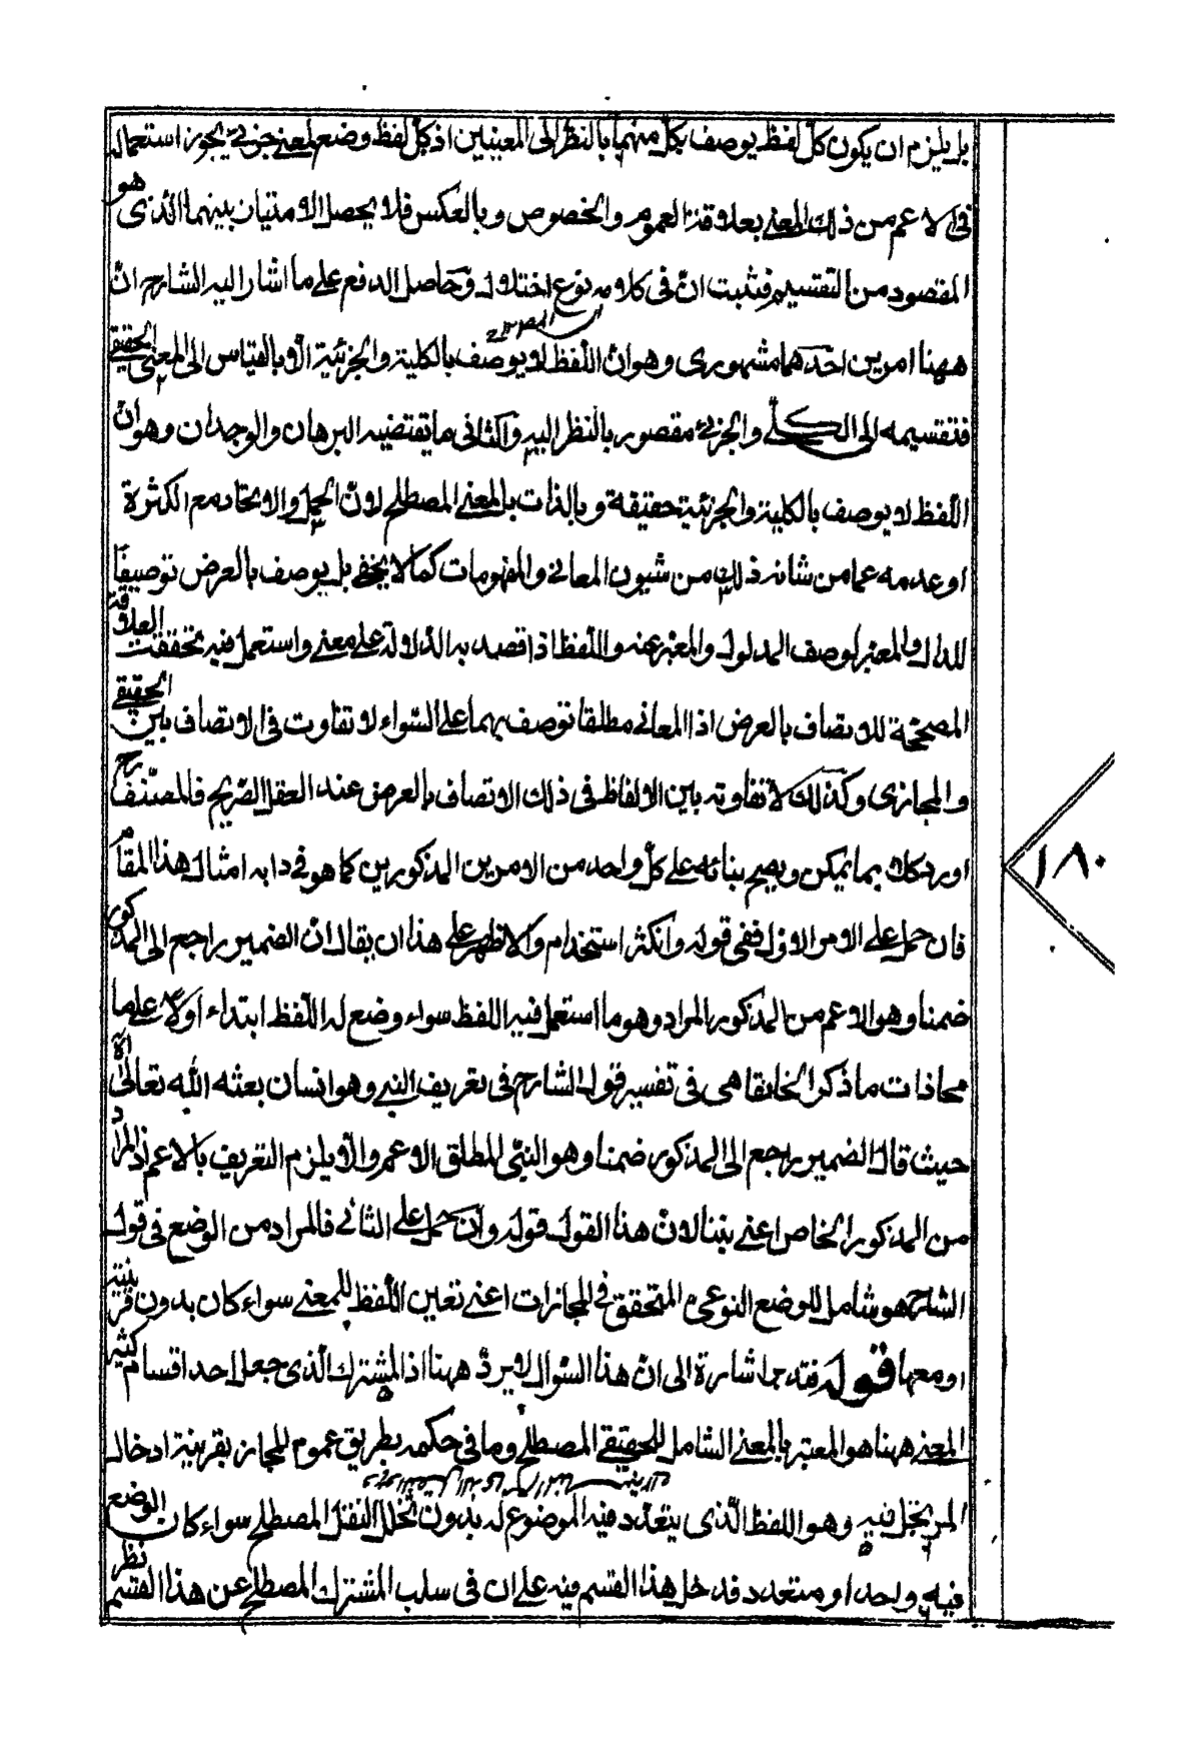 بل يلزم ان يكون كل لفظ يوصف بكل منهما بالنظر الى المعنيين اذ كل لفظ وضع لمعنى جزئي يجوز استعماله
في الاعم من ذلك المعنى بعلاقة العموم والخصوص وبالعكس فلا يحصل الامتيان بينهما الذى هو
المقصود من التقسيم فثبت انّ فى كلامه نوع اختلال وحاصل الدفع على ما اشار اليه الشارح انّ
ههنا امرين احدهما مشهورى وهو انّ اللفظ لا يوصف بالكلية والجزئية الّا بالقياس الى المعنى الحقيقي
فتقسيمه الى الكلّي والجزئي مقصور بالنظر اليه والثانى ما يقتضيه البرهان والوجدان وهو انّ
اللفظ لا يوصف بالكلية والجزئية حقيقة وبالذات بل المعنى المصطلح لانّ الحمل والاتحاد مع الكثرة
او عدمه عما من شانه ذلك من شيون المعانى والمفهومات كما لا يخفى بل يوصف بالعرض توصيفا
للدال والمعبر لوصف المدلول والمعبر عنه واللفظ اذا قصد به الدلالة على معنى واستعمل فيه تحققت العلاقة
المصححة للاتصاف بالعرض اذا المعانى مطلقا توصف بهما على السّواء لا تفاوت فى الاتصاف بين الحقيقي
والمجازى وكذلك لا تفاوت بين الالفاظ فى ذلك الاتصاف بالعرض عند العقل الصّريح فالمصنّف رح
اورد كلاما يمكن ويصح بنائه على كلّ واحد من الامرين المذكورين كما هو فى دابه امثال هذا المقام
فان حمل على الامر الاول ففى قوله وان كثر استخدام والاظهر على هذا ان يقال انّ الضمير راجع الى المذكور
ضمنا وهو الاعم من المذكور المراد وهو ما استعمل فيه اللفظ سواء وضع له اللفظ ابتداء او لا على ما
محاذات ما ذكر الخانقاهى فى تفسير قول الشارح فى تعريف النبى وهو انسان بعثه الله تعالى الآه
حيث قال الضمير راجع الى المذكور ضمنا وهو النبّى المطلق الاعم والّا يلزم التعريف بالاعم اذ المراد
من المذكور الخاص اعنى نبينا لانّ هذا القول قوله وان حمل على الثانى فالمراد من الوضع فى قول
الشارح هو شامل للوضع النوعى المتحقق فى المجازات اعنى تعين اللفظ للمعنى سواء كان بدون قرينة
او معها قوله فقد جا اشارة الى انّ هذا السّوال لا يردّ ههنا اذ المشترك الّذى جعل احد اقسام كثير
المعنى ههنا هو المعتبر بالمعنى الشامل للحقيقي المصطلح وما فى حكمه بطريق عموم المجاز بقرينة ادخال
المرتجل فيه وهو اللفظ الّذى يتعدّد فيه الموضوع له بدون تخلل النقل المصطلح سواء كان الوضع
فيه واحد او متعدد فدخل هذا القسم فيه على ان فى سلب المشترك المصطلح عن هذا القسم نظر
١٨٠